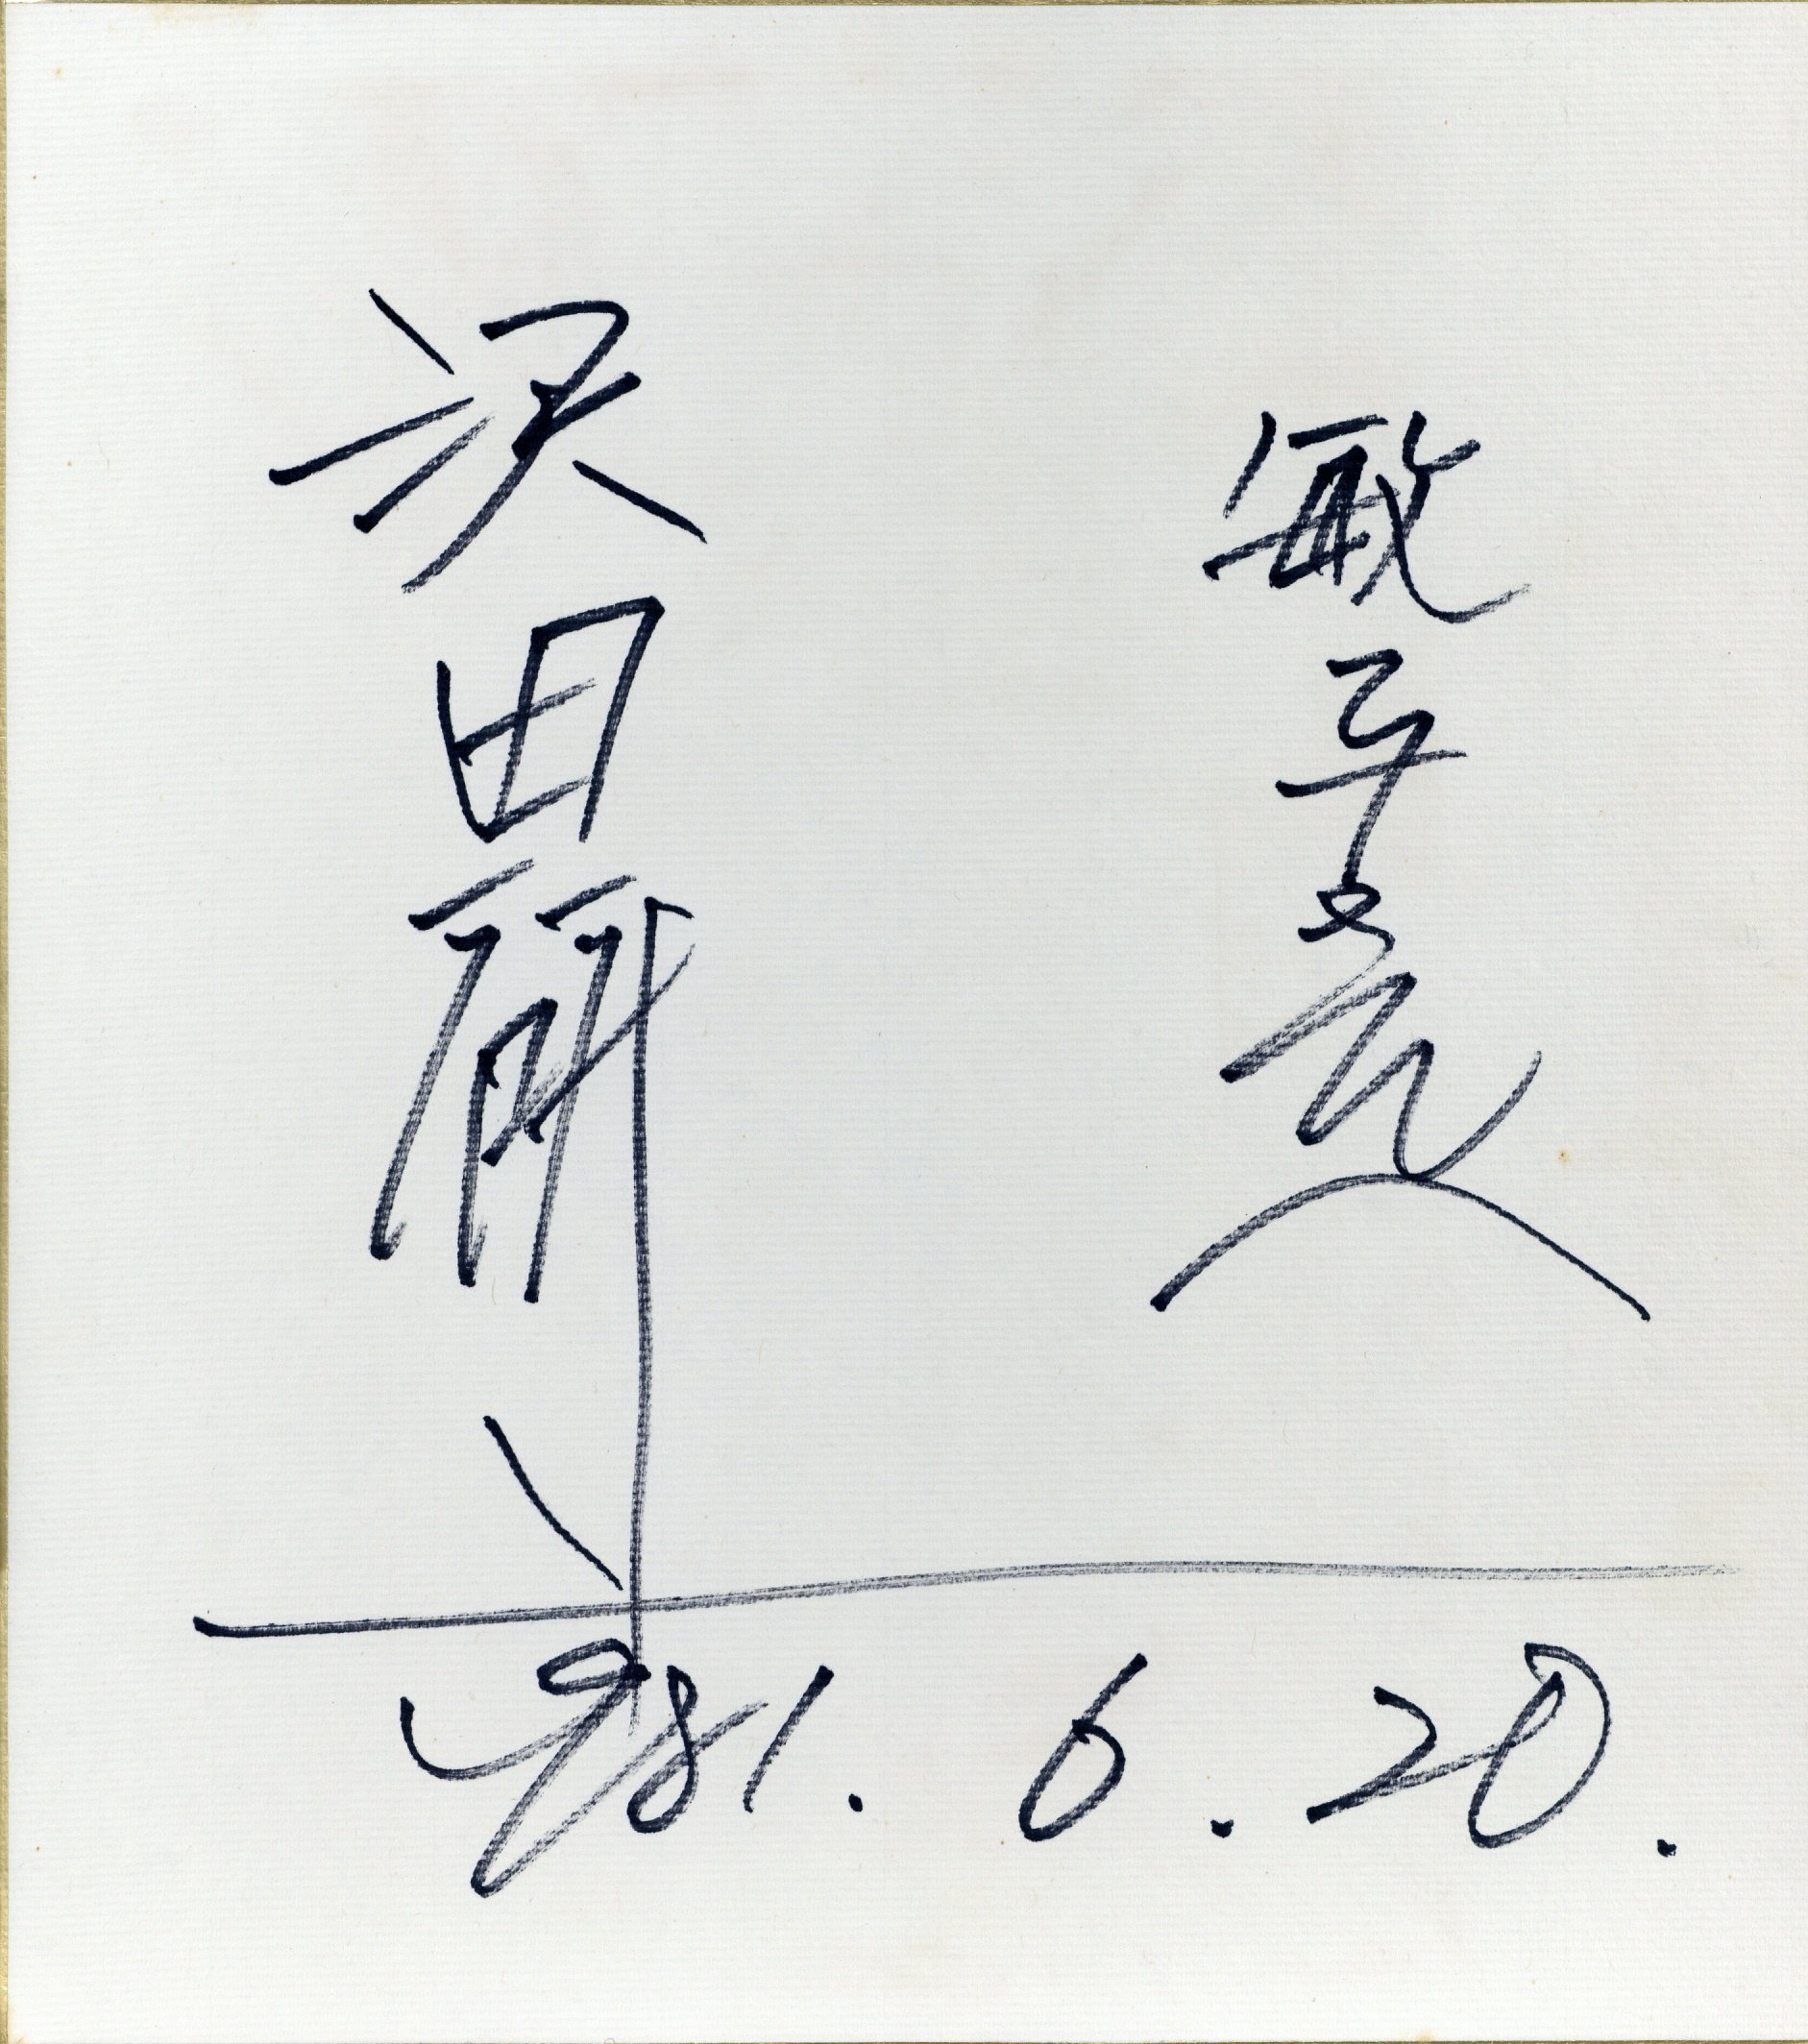 敏子さん
沢田研二
'81. 6. 20.